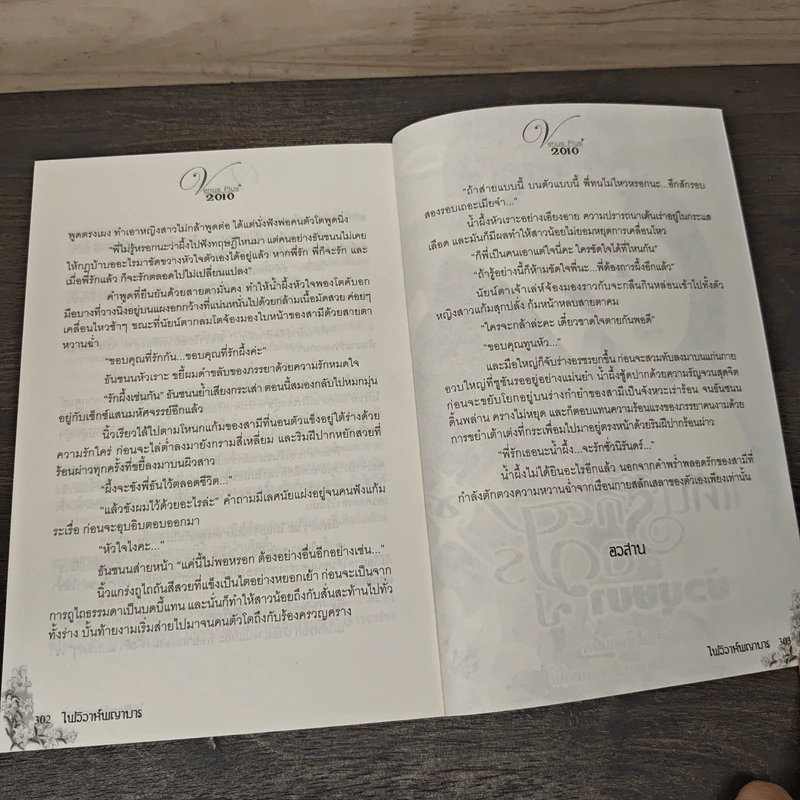 Venus Plus+
2010
พูดตรงเผง ทำเอาหญิงสาวไม่กล้าพูดต่อ ได้แต่นั่งฟังพ่อคนตัวโตพูดนิ่ง
"พี่ไม่รู้หรอกนะว่าผึ้งไปฟังทฤษฎีไหนมา แต่คนอย่างอันชนนไม่เคย
ให้กฎบ้าบออะไรมาขัดขวางหัวใจตัวเองได้อยู่แล้ว หากพี่รัก พี่ก็จะรัก และ
เมื่อพี่รักแล้ว ก็จะรักตลอดไปไม่เปลี่ยนแปลง"
คำพูดที่ยืนยันด้วยสายตามั่นคง ทำให้น้ำผึ้งหัวใจพองโตคับอก
มือบางที่วางนิ่งอยู่บนแผงอกกว้างที่แน่นหนั่นไปด้วยกล้ามเนื้อมัดสวย ค่อยๆ
เคลื่อนไหวช้าๆ ขณะที่นัยน์ตากลมโตจ้องมองใบหน้าของสามีด้วยสายตา
หวานฉ่ำ
"ขอบคุณที่รักกัน...ขอบคุณที่รักผึ้งค่ะ"
อันชนนหัวเราะ ขยี้ผมดำขลับของภรรยาด้วยความรักหมดใจ
"รักผึ้งเช่นกัน" อันชนนย้ำเสียงกระเส่า ตอนนี้สมองกลับไปหมกมุ่น
อยู่กับเซ็กซ์แสนมหัศจรรย์อีกแล้ว
นิ้วเรียวไล้ไปตามโหนกแก้มของสามีที่นอนตัวแข็งอยู่ใต้ร่างด้วย
ความรักใคร่ ก่อนจะไล่ต่ำลงมายังกรามสี่เหลี่ยม และริมฝีปากหยักสวยที่
ร้อนผ่าวทุกครั้งที่ขยี้ลงมาบนผิวสาว
"ผึ้งจะขังพี่อันไว้ตลอดชีวิต..."
"แล้วขังผมไว้ด้วยอะไรล่ะ" คำถามมีเลศนัยแฝงอยู่จนคนฟังแก้ม
ระเรื่อ ก่อนจะอุบอิบตอบออกมา
"หัวใจไงคะ..."
อันชนนส่ายหน้า "แค่นี้ไม่พอหรอก ต้องอย่างอื่นอีกอย่างเช่น..."
นิ้วแกร่งถูไถถันสีสวยที่แข็งเป็นไตอย่างหยอกเย้า ก่อนจะเป็นจาก
การถูไถธรรมดาเป็นบดบี้แทน และนั่นก็ทำให้สาวน้อยถึงกับสั่นสะท้านไปทั่ว
ทั้งร่าง บั้นท้ายงามเริ่มส่ายไปมาจนคนตัวโตถึงกับร้องครวญคราง
302 ไฟวิวาห์พญามาร
Venus Plus+
2010
"ถ้าส่ายแบบนี้ บนตัวแบบนี้ พี่ทนไม่ไหวหรอกนะ...อีกสักรอบ
สองรอบเถอะเมียจ๋า..."
น้ำผึ้งหัวเราะอย่างเอียงอาย ความปรารถนาเต้นเร่าอยู่ในกระแส
เลือด และมันก็มีผลทำให้สาวน้อยไม่ยอมหยุดการเคลื่อนไหว
"ก็พี่เป็นคนเอาแต่ใจนี่คะ ใครขัดใจได้ที่ไหนกัน"
"ถ้ารู้อย่างนี้ก็ห้ามขัดใจพี่นะ...พี่ต้องการผึ้งอีกแล้ว"
นัยน์ตาเจ้าเล่ห์จ้องมองราวกับจะกลืนกินหล่อนเข้าไปทั้งตัว
หญิงสาวแก้มสุกปลั่ง ก้มหน้าหลบสายตาคม
"ใครจะกล้าล่ะคะ เดี๋ยวขาดใจตายกันพอดี"
"ขอบคุณทูนหัว..."
และมือใหญ่ก็จับร่างอรชรยกขึ้น ก่อนจะสวมทับลงมาบนแก่นกาย
อวบใหญ่ที่ชูชันรออยู่อย่างแม่นยำ น้ำผึ้งซู้ดปากด้วยความรัญจวนสุดจิต
ก่อนจะขยับโยกอยู่บนร่างกำยำของสามีเป็นจังหวะเร่าร้อน จนอันชนน
ดิ้นพล่าน ครางไม่หยุด และก็ตอบแทนความร้อนแรงของภรรยาคนงามด้วย
การขยำเต้าเต่งที่กระเพื่อมไปมาอยู่ตรงหน้าด้วยริมฝีปากร้อนผ่าว
"พี่รักเธอนะน้ำผึ้ง...จะรักชั่วนิรันดร์..."
น้ำผึ้งไม่ได้ยินอะไรอีกแล้ว นอกจากคำพร่ำพลอดรักของสามีที่
กำลังตักตวงความหวานฉ่ำจากเรือนกายสลักเสลาของตัวเองเพียงเท่านั้น
อวสาน
ไฟวิวาห์พญามาร 303